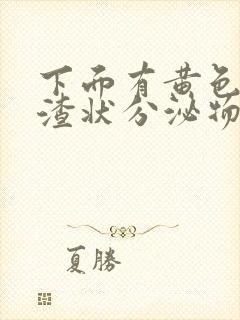 下面有黄色
渣状分泌物
夏勝